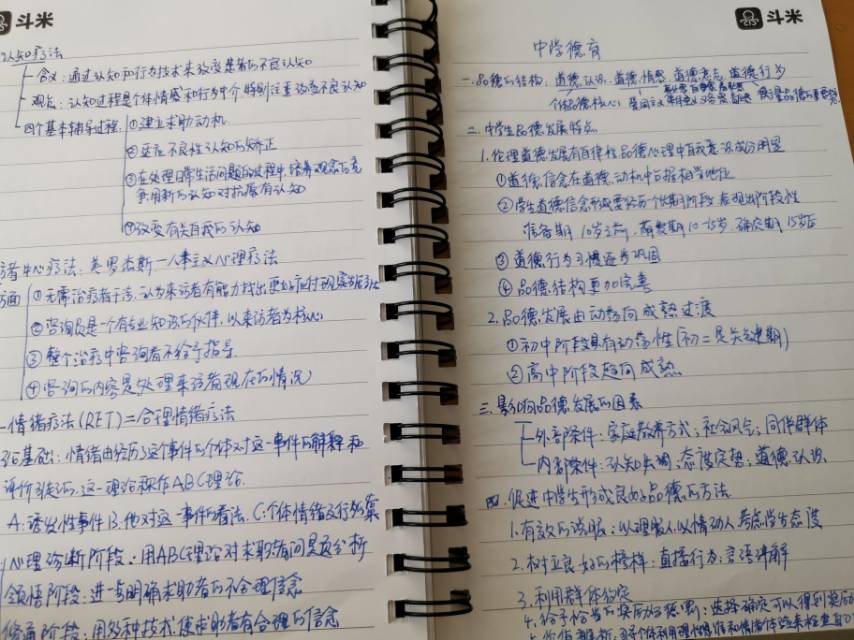 斗米
认知疗法
含义:通过认知和行为技术来改变患者的不良认知
观点:认知过程是个体情感和行为中介,特别注重改变不良认知
四个基本辅导过程
①建立求助动机
②适应不良性认知的矫正
③在处理日常生活问题的过程中,培养观念的竞
争,用新的认知对抗原有认知
④改变有关自我的认知
者中心疗法:美 罗杰斯—人本主义心理疗法
方面
①无需治疗者干涉,认为来访者有能力找出更好应付现实
②咨询员是一个有专业知识的伙伴,以来访者为核心
③整个治疗中咨询者不给予指导
④咨询的内容是处理来访者现在的情况
—情绪疗法(RET)=合理情绪疗法
基础:情绪由经历了这事件的个体对这一事件的解释和
评价引起的,这一理论称作ABC理论
A:诱发性事件 B:他对这一事件的看法 C:个体情绪及行为结果
心理诊断阶段:用ABC理论对求职者问题分析
领悟阶段:进一步明确求助者的不合理信念
修通阶段:用多种技术,使求助者有合理的信念
斗米
中学德育
一.品德的结构:道德认识,道德情感,道德意志,道德行为
个体品德核心
二.中学生品德发展特点
1.伦理道德发展有自律性,品德心理中自我意识成分明显
①道德信念在道德动机中占据相当地位
②学生道德信念形成要经历一个长期阶段,表现出阶段性
准备期 10岁之前,萌发期10-15岁,确定期 15岁后
③道德行为习惯逐步巩固
④品德结构更加完善
2.品德发展由动荡向成熟过渡
①初中阶段具有动荡性(初二是关键期)
②高中阶段趋向成熟
三.影响品德发展的因素
外部条件:家庭教养方式;社会风气;同伴群体
内部条件:认知失调,态度定势,道德认识
四.促进中学生形成良好品德的方法
1.有效的说服:以理服人,以情动人,考虑学生态度
2.树立良好的榜样:直播行为,言语讲解
3.利用群体约定
4.给予恰当的奖励与惩罚:选择确定可以得到奖励